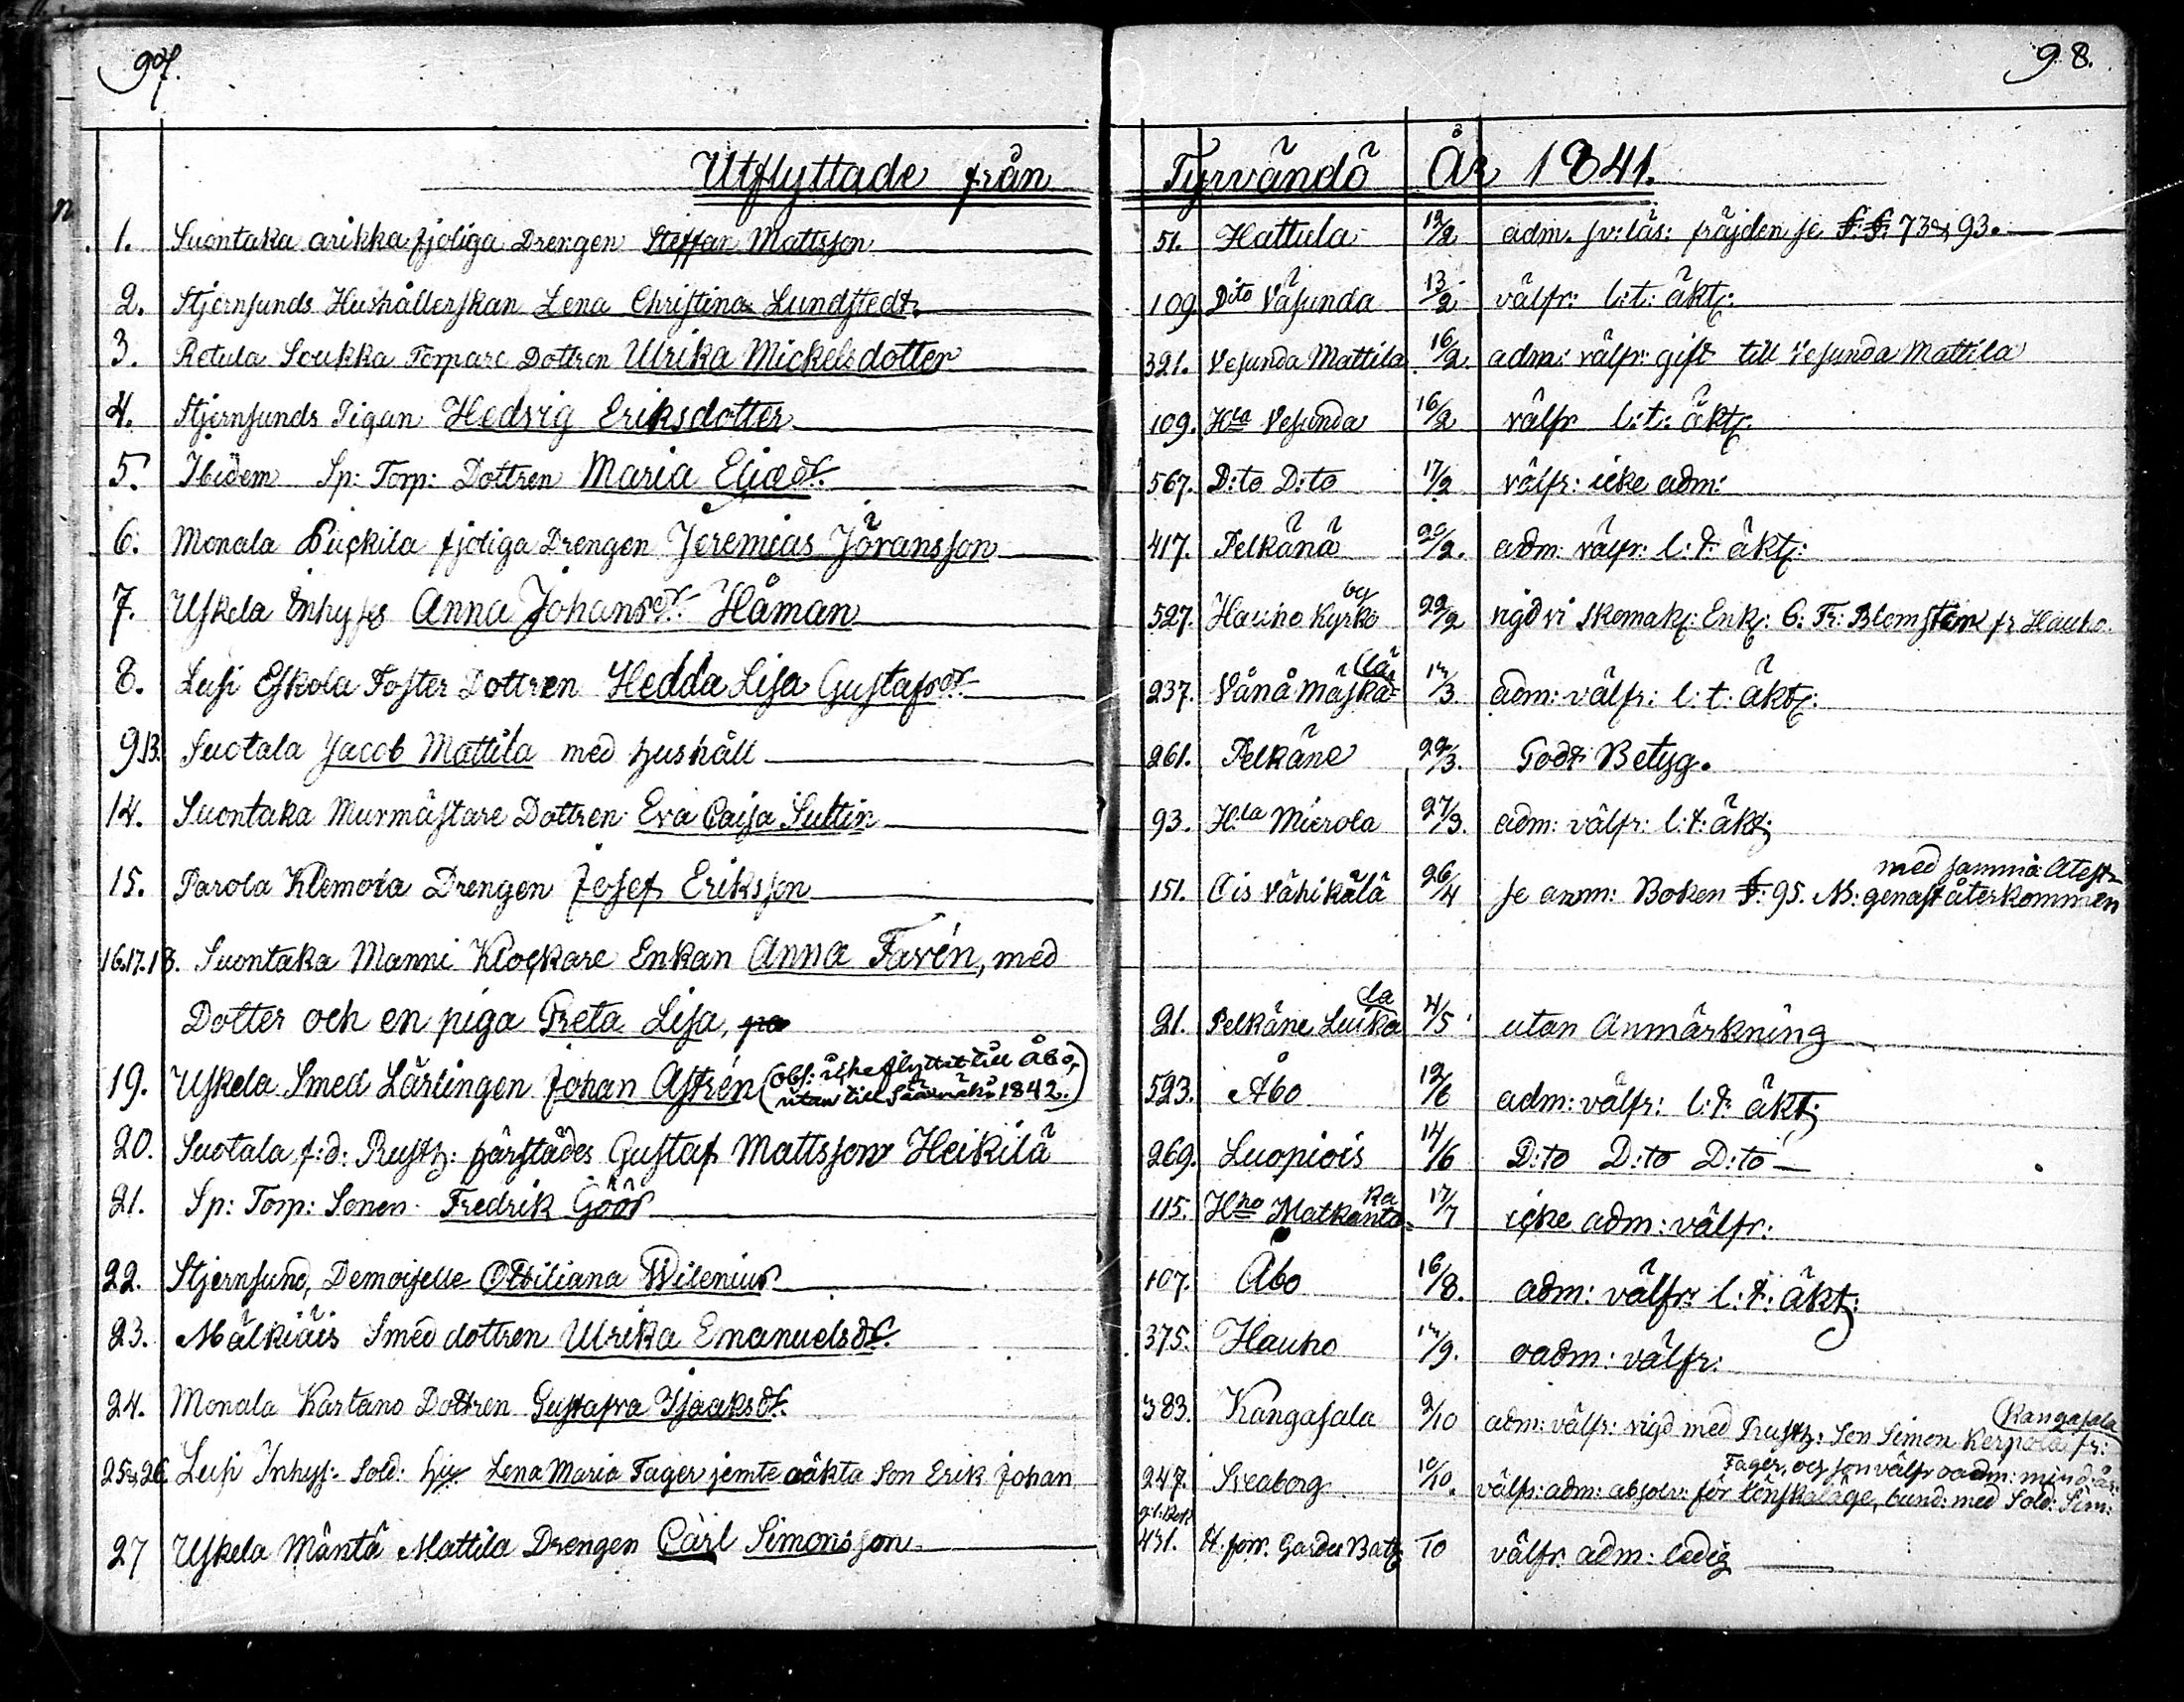 97.
98.
Utflyttade från Tyrvändö År 1841.
1. Suontaka arikka fjoliga Drengen Steffan Mattsson 51. Hattula 12/2 adm. sv: läs: fräjden se f: f: 73 & 93.
2. Stjernsunds Hushållerskan Lena Christina Lundstedt. 109 Dito Väsunda 13/2 välfr: l: t: äkt:
3. Retula Soukka Torpare Dottren Ulrika Mickelsdotter 321. Vesunda Mattila 16/2. adm: välfr: gift till Vesunda Mattila
4. Stjernsunds Pigan Hedvig Eriksdotter 109. Hla Vesunda 16/2 välfr l: t: äkt:
5. Ibidem Sp: Torp: Dottren Maria Eliædr. 567. D:to D:to 17/2 välfr: icke adm:
6. Monala Puckila fjoliga Drengen Jeremias Jöransson 417. Pelkänä 20/2. adm: välfr: l: t: äkt:
7. Uskela Inhyses Anna Johansdr. Håman 527. Hauho Kyrko by 22/2 vigd vi Skomak: Enk: C: Fr: Blomstem fr Hauho.
8. Leisi Eskola Foster Dottren Hedda Lisa Gustafsdr 237. Vånå Mäska= lä 12/3. adm: välfr: l: t: äkt:
9.13. Suotala Jacob Mattila med hushåll 261. Pelkäne 22/3. Godt Betyg.
14. Suontaka Murmästare Dottren Eva Caisa Suttin 93. H:la Mierola 27/3. adm: välfr: l: t: äkt:
15. Parola Klemola Drengen Josef Eriksson 151. Ois Vähikälä 26/4 se anm: Boken f: 95. NB: genast återkommen
med samma Atest
16.17.18. Suontaka Manni Klockare Enkan Anna Favén, med
Dotter och en piga Greta Lisa, 21. Pelkäne Luika la 4/5 utan Anmärkning
19. Uskela Smed Lärlingen Johan Astrén (obs: icke flyttet till Åbo, utan till Säämäki 1842.) 523. Åbo 12/6 adm: välfr: l: t: äkt:
20. Suotala, f: d: Rusth: härstädes Gustaf Mattsson Heikilä 269. Luopiois 14/6 D:to D:to D:to
21. Sp: Torp: Sonen Fredrik Göös 115. Hho Matkanta= ka 17/7 icke adm: välfr:
22. Stjernsund, Demoiselle Ottiliana Wilenius 107. Åbo 16/8. adm: välfr: l: t: äkt:
23. Mälkiäis Smed dottren Ulrika Emanuelsdr. 375. Hauho 12/9. oadm: välfr:
24. Monala Kartano Dottren Gustafva Isaaksdr. 383. Kangasala 2/10 adm: välfr: vigd med Rusth: Son Simon Kerpola fr: Kangasala
25 & 26 Leisi Inhys: Sold: Lena Maria Fager jemte oäkta Son Erik Johan 247. Sveaborg 10/10. välfr: adm: absolv: för lönskaläge, bund: med Sold: Sim:
Fager, och son välfr oadm: mind: år:
27 Uskela Mäntä Mattila Drengen Carl Simonsson 431. H:fors. Gardes Bat: 10 välfr. adm: ledig